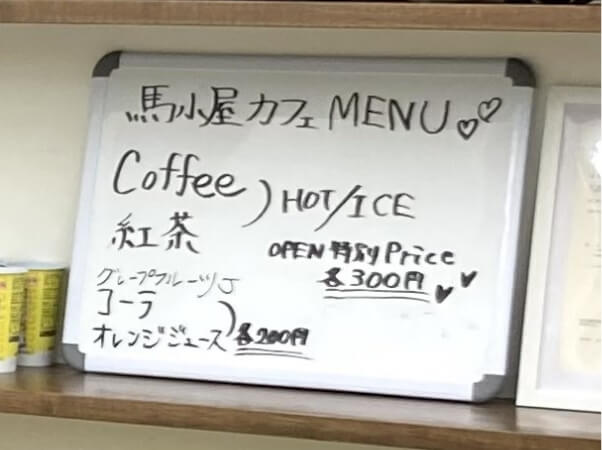 馬小屋カフェMENU♡♡
Coffee
紅茶
) HOT/ICE
OPEN 特別 Price
各300円
グレープフルーツJ
コーラ
オレンジジュース
) 各200円